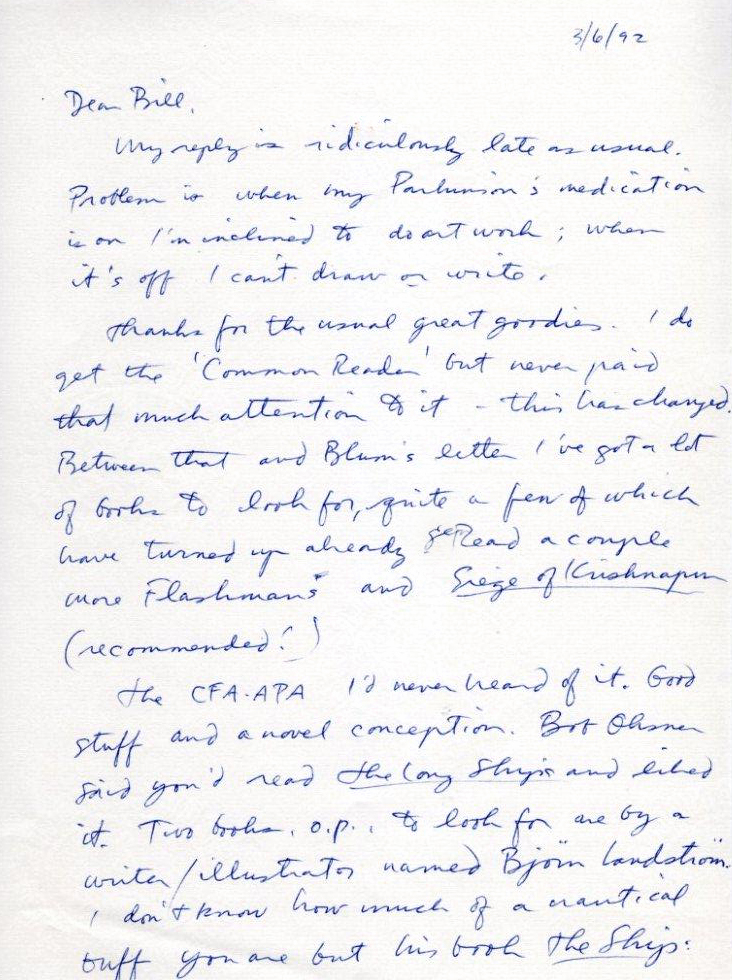 3/6/92
Dear Bill,
My reply is ridiculously late as usual.
Problem is when my Parkinson's medication
is on I'm inclined to do art work; when
it's off I can't draw or write.
Thanks for the usual great goodies. I do
get the 'Common Reader' but never paid
that much attention to it - this has changed.
Between that and Blum's letter I've got a lot
of books to look for, quite a few of which
have turned up already. Read a couple
more Flashman's and Siege of Krishnapur
(recommended!)
The CFA-APA I'd never heard of it. Good
stuff and a novel conception. Bob
said you'd read The Long Ships and liked
it. Two books, o.p., to look for are by a
writer/illustrator named Björn Landström.
I don't know how much of a nautical
buff you are but his book The Ship: